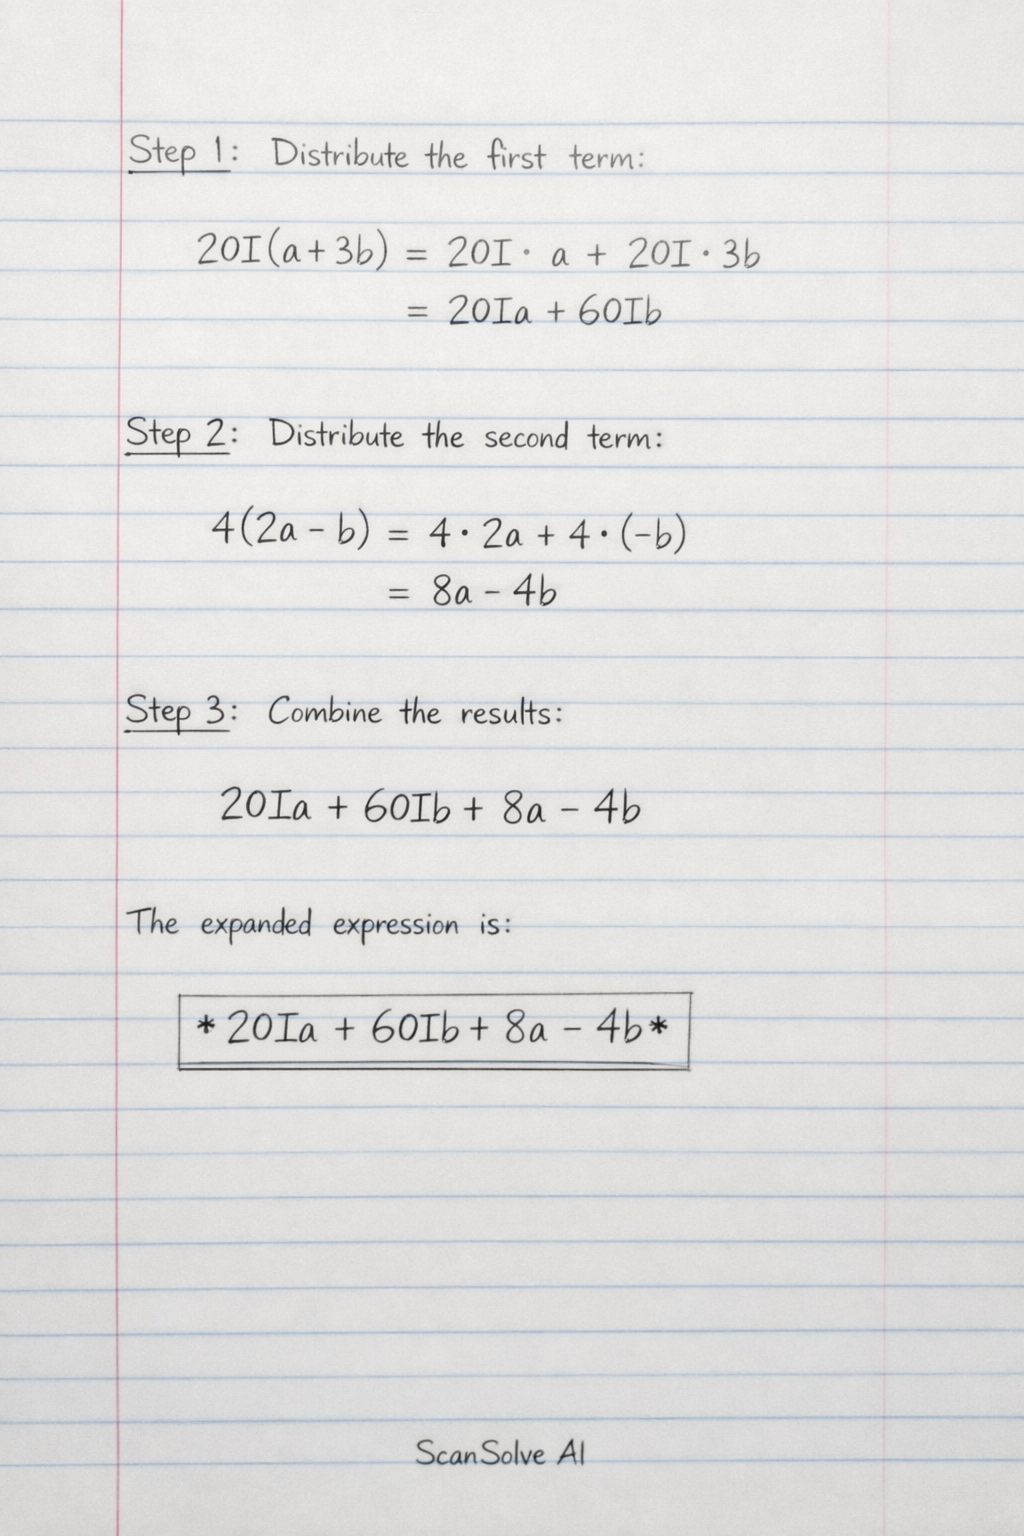 Step 1: Distribute the first term:
20I(a + 3b) = 20I · a + 20I · 3b
= 20Ia + 60Ib
Step 2: Distribute the second term:
4(2a − b) = 4 · 2a + 4 · (−b)
= 8a − 4b
Step 3: Combine the results:
20Ia + 60Ib + 8a − 4b
The expanded expression is:
* 20Ia + 60Ib + 8a − 4b *
ScanSolve AI